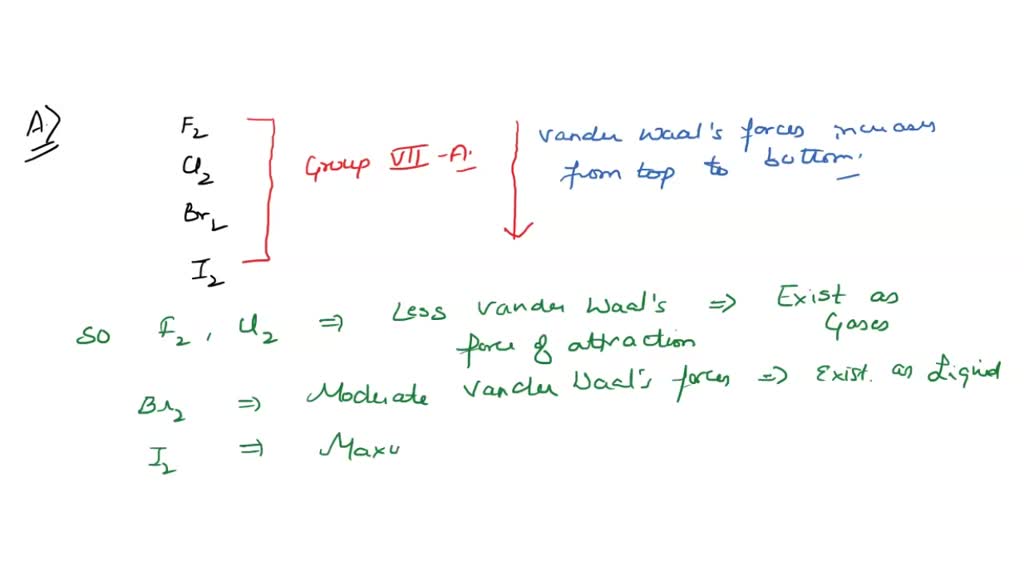 A)
F2
Cl2
Br2
I2
Group VII-A.
vander waal's forces increases
from top to bottom.
so F2, Cl2 ⇒ Less vander waal's force of attraction ⇒ Exist as Gases
Br2 ⇒ Moderate vander waal's forces ⇒ Exist. as Liquid
I2 ⇒ Maxu